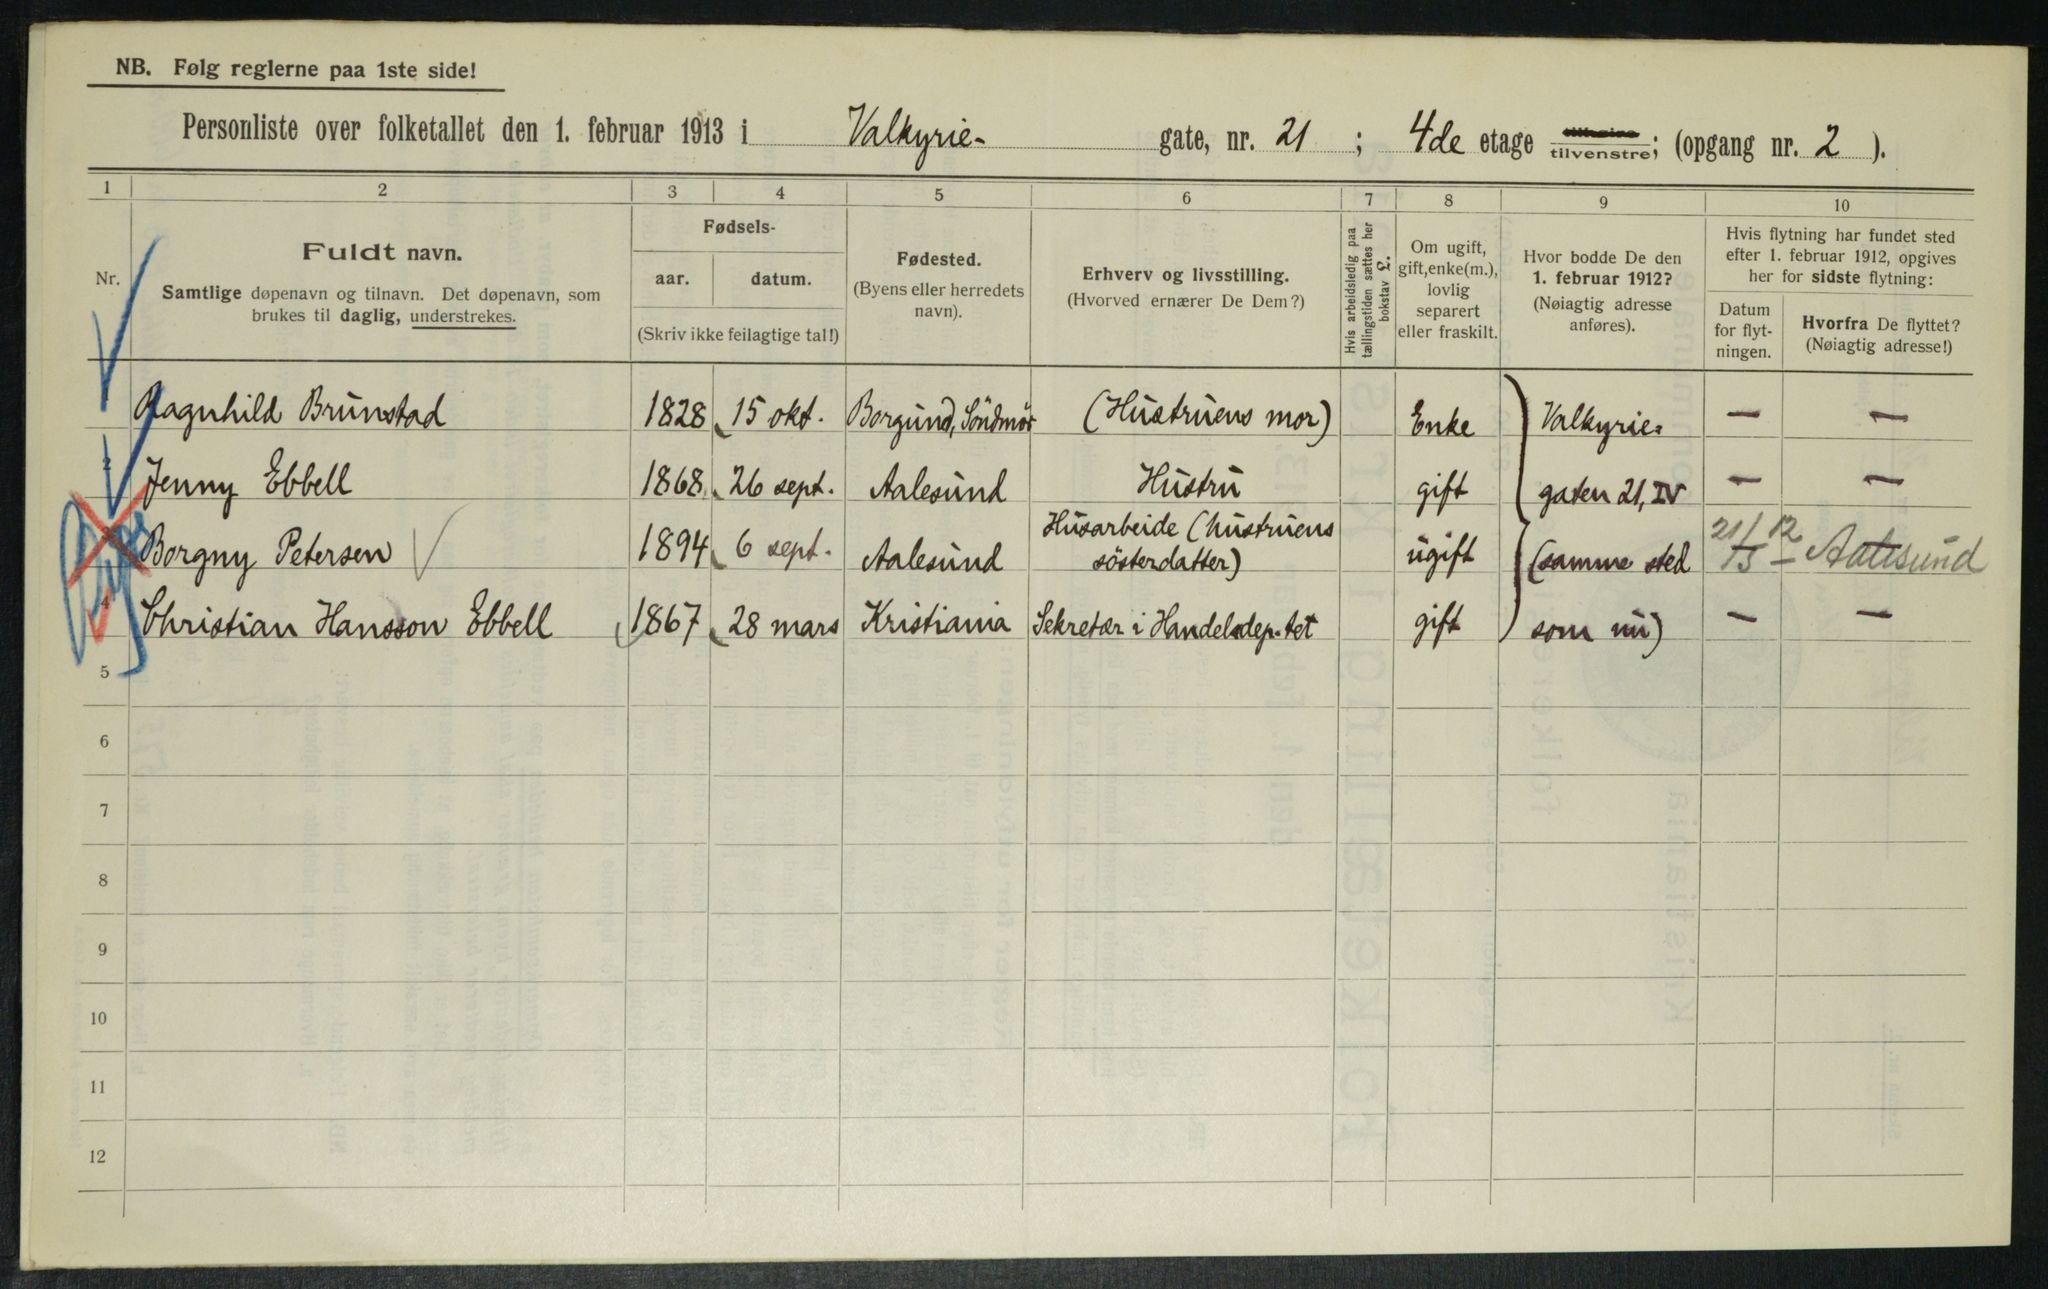 NB. Følg reglerne paa 1ste side!
Personliste over folketallet den 1. februar 1913 i Valkyrie- gate, nr. 21 ; 4de etage tilhøire tilvenstre; (opgang nr. 2 ).
1 2 3 4 5 6 7 8 9 10
Nr.
Fuldt navn.
Samtlige døpenavn og tilnavn. Det døpenavn, som
brukes til daglig, understrekes.
Fødsels-
aar. datum.
(Skriv ikke feilagtige tal!)
Fødested.
(Byens eller herredets
navn).
Erhverv og livsstilling.
(Hvorved ernærer De Dem?)
Hvis arbeidsledig paa
tællingstiden sættes her
bokstav L.
Om ugift,
gift, enke(m.),
lovlig
separert
eller fraskilt.
Hvor bodde De den
1. februar 1912?
(Nøiagtig adresse
anføres).
Hvis flytning har fundet sted
efter 1. februar 1912, opgives
her for sidste flytning:
Datum
for flyt-
ningen.
Hvorfra De flyttet?
(Nøiagtig adresse!)
Ragnhild Brunstad 1828 15 okt. Borgund, Söndmör (Hustruens mor) Enke Valkyrie- — —
2 Jenny Ebbell 1868 26 sept. Aalesund Hustru gift gaten 21, IV — —
3 Borgny Petersen 1894 6 sept. Aalesund Husarbeide (hustruens
sösterdatter) ugift (samme sted 21/ 12 Aalesund
4 Christian Hansson Ebbell 1867 28 mars Kristiania Sekretær i Handelsdep-tet gift som nu) — —
5
6
7
8
9
10
11
12